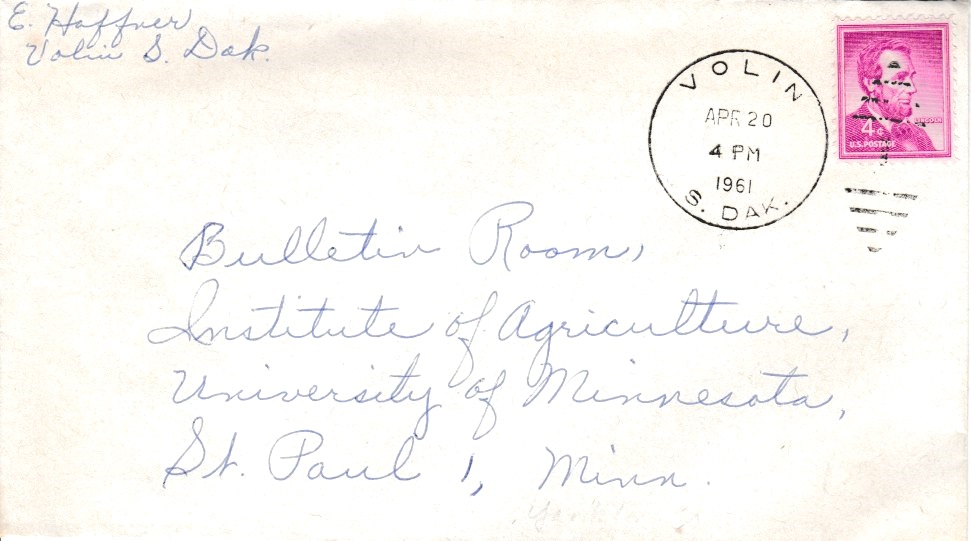 E. Haffner
Volin S. Dak.
VOLIN
APR 20
4 PM
1961
S. DAK.
LINCOLN
4¢
U.S. POSTAGE
Bulletin Room,
Institute of Agriculture,
University of Minnesota,
St. Paul 1, Minn.